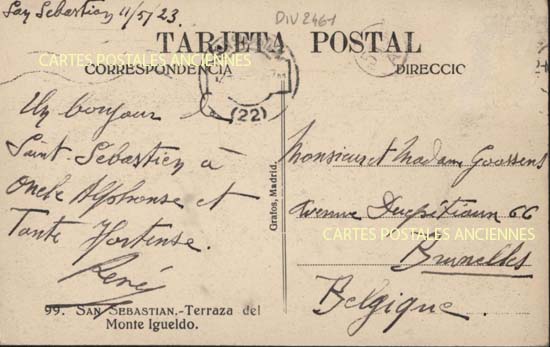 San Sebastian 11/5/23.
DIV 2461
TARJETA POSTAL
CARTES POSTALES ANCIENNES
CORRESPONDENCIA
DIRECCIO
(22)
Un bonjour de
Saint-Sebastien à
Oncle Alphonse et
Tante Hortense.
René
Monsieur et Madame Goossens
Avenue Ducpétiaux 66
CARTES POSTALES ANCIENNES
Bruxelles
Belgique.
Grafos, Madrid.
99. SAN SEBASTIAN.-Terraza del
Monte Igueldo.